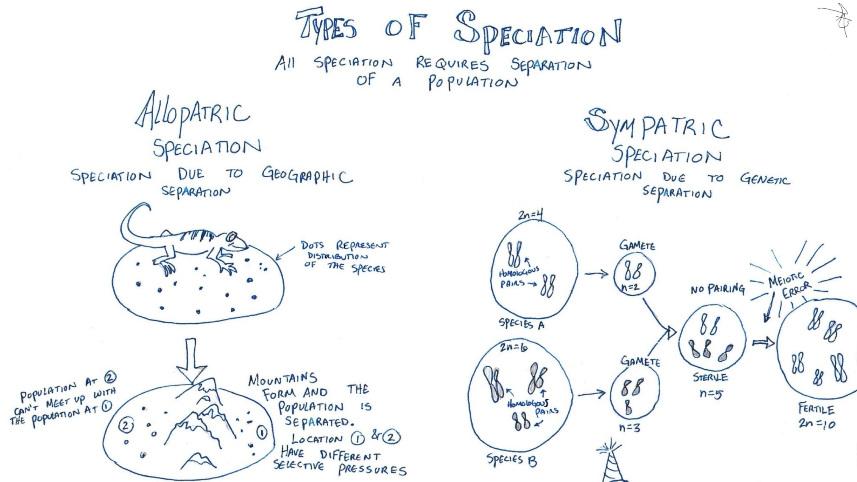 TYPES OF SPECIATION
All SPECIATION REQUIRES SEPARATION
OF A POPULATION
AllOPATRIC
SPECIATION
SPECIATION DUE TO GEOGRAPHIC
SEPARATION
DOTS REPRESENT
DISTRIBUTION
OF THE SPECIES
POPULATION AT ②
CAN'T MEET UP WITH
THE POPULATION AT ①
②
①
MOUNTAINS
FORM AND THE
POPULATION IS
SEPARATED.
LOCATION ① & ②
HAVE DIFFERENT
SELECTIVE PRESSURES
SYMPATRIC
SPECIATION
SPECIATION DUE TO GENETIC
SEPARATION
2n=4
HOMOLOGOUS
PAIRS
SPECIES A
GAMETE
n=2
2n=6
HOMOLOGOUS
PAIRS
SPECIES B
GAMETE
n=3
NO PAIRING
STERILE
n=5
MEIOTIC
ERROR
FERTILE
2n=10